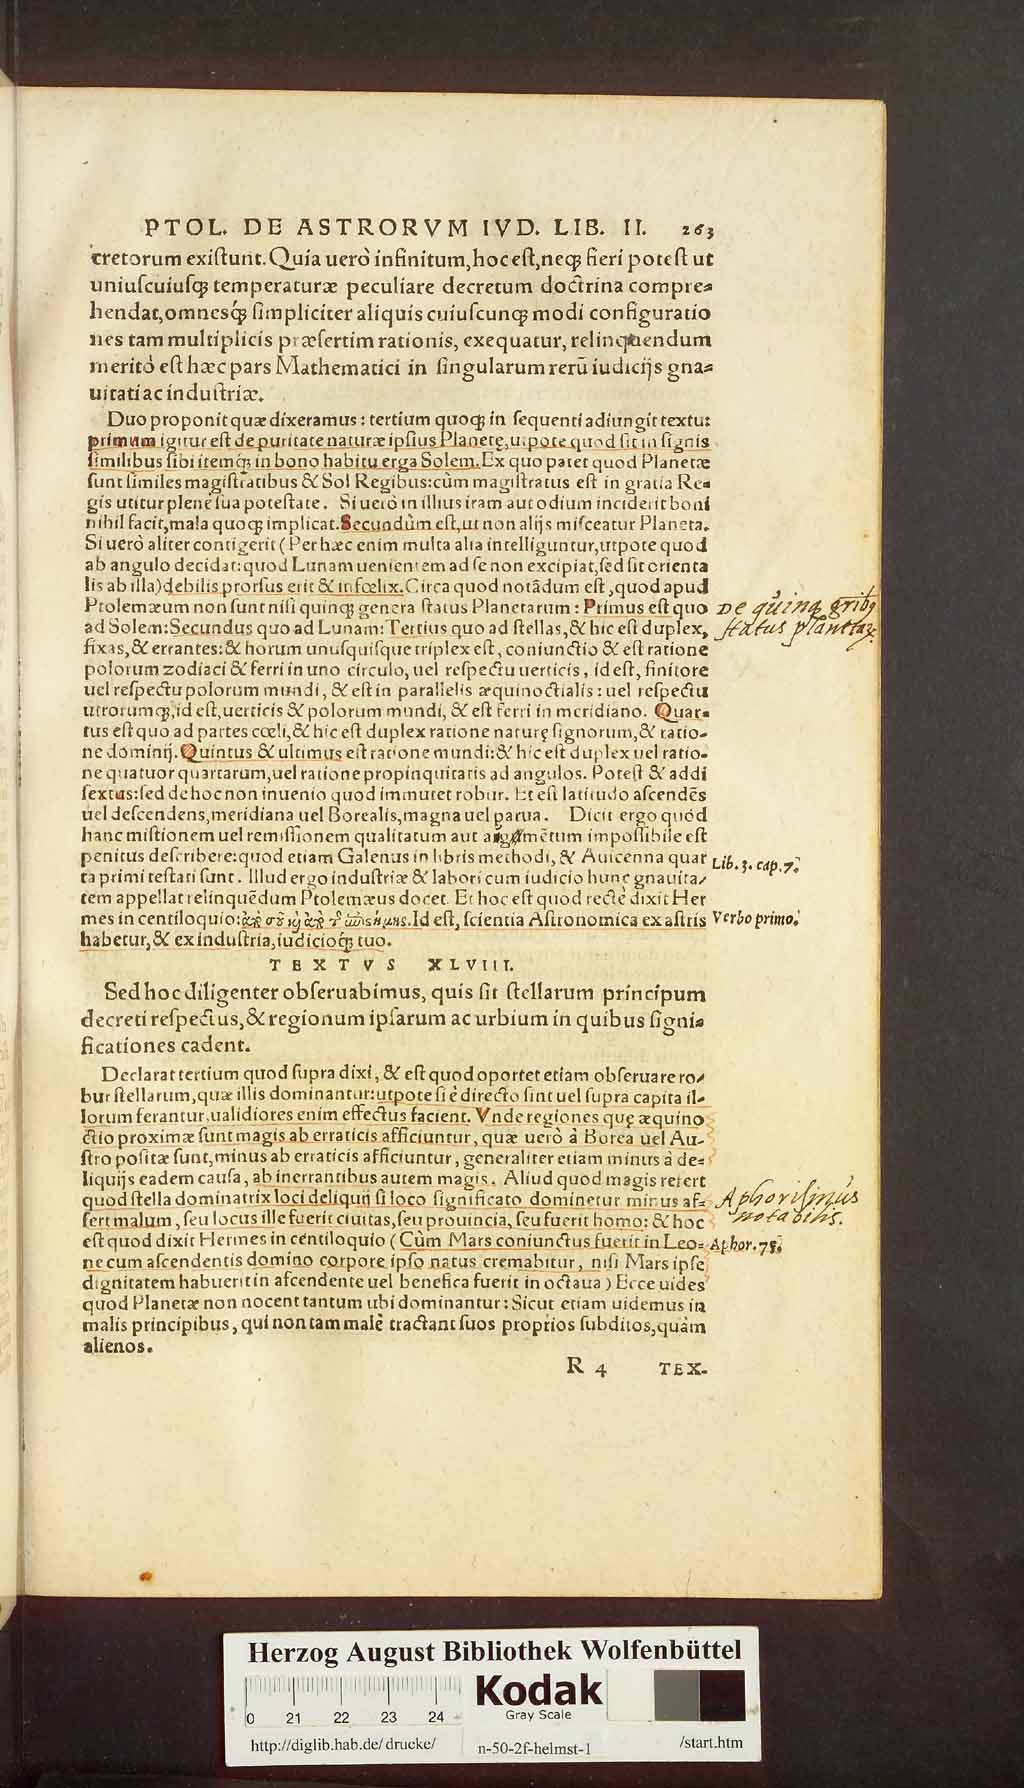 PTOL. DE ASTRORVM IVD. LIB. II. 263
cretorum exiſtunt. Quia uerò infinitum, hoc eſt, neq; fieri poteſt ut
uniuſcuiuſq; temperaturæ peculiare decretum doctrina compre⸗
hendat, omnesq́; ſimpliciter aliquis cuiuſcunq; modi configuratio
nes tam multiplicis præſertim rationis, exequatur, relinquendum
meritò eſt hæc pars Mathematici in ſingularum rerū iudicijs gna⸗
uitati ac induſtriæ.
Duo proponit quæ dixeramus: tertium quoq; in ſequenti adiungit textu:
primum igitur eſt de puritate naturæ ipſius Planetę, utpote quod ſit in ſignis
ſimilibus ſibi itemq́; in bono habitu erga Solem. Ex quo patet quod Planetæ
ſunt ſimiles magiſtratibus & Sol Regibus: cùm magiſtratus eſt in gratia Re⸗
gis utitur plenè ſua poteſtate. Si uerò in illius iram aut odium inciderit boni
nihil facit, mala quoq; implicat. Secundùm eſt, ut non alijs miſceatur Planeta.
Si uerò aliter contigerit (Per hæc enim multa alia intelliguntur, utpote quod
ab angulo decidat: quod Lunam uenientem ad ſe non excipiat, ſed ſit orienta
lis ab illa) debilis prorſus erit & infœlix. Circa quod notãdum eſt, quod apud
Ptolemæum non ſunt niſi quinq; genera ſtatus Planetarum: Primus eſt quo
De quinq;
ad Solem: Secundus quo ad Lunam: Tertius quo ad ſtellas, & hic eſt duplex,
ſtatus
fixas, & errantes: & horum unuſquiſque triplex eſt, coniunctio & eſt ratione
polorum zodiaci & ferri in uno circulo, uel reſpectu uerticis, id eſt, finitore
uel reſpectu polorum mundi, & eſt in parallelis æquinoctialis: uel reſpectu
utrorumq;, id eſt, uerticis & polorum mundi, & eſt ferri in meridiano. Quar⸗
tus eſt quo ad partes cœli, & hic eſt duplex ratione naturę ſignorum, & ratio⸗
ne dominij. Quintus & ultimus eſt ratione mundi: & hic eſt duplex uel ratio⸗
ne quatuor quartarum, uel ratione propinquitatis ad angulos. Poteſt & addi
ſextus: ſed de hoc non inuenio quod immutet robur. Et eſt latitudo aſcendẽs
uel deſcendens, meridiana uel Borealis, magna uel parua. Dicit ergo quòd
hanc miſtionem uel remiſſionem qualitatum aut augmẽtum impoſſibile eſt
penitus deſcribere: quod etiam Galenus in libris methodi, & Auicenna quar
Lib. 3. cap. 7.
ta primi teſtati ſunt. Illud ergo induſtriæ & labori cum iudicio hunc gnauita⸗
tem appellat relinquẽdum Ptolemæus docet. Et hoc eſt quod rectè dixit Her
mes in centiloquio: Id eſt, ſcientia Aſtronomica ex aſtris
Verbo primo.
habetur, & ex induſtria, iudicioq; tuo.
TEXTVS XLVIII.
Sed hoc diligenter obſeruabimus, quis ſit ſtellarum principum
decreti reſpectus, & regionum ipſarum ac urbium in quibus ſigni⸗
ficationes cadent.
Declarat tertium quod ſupra dixi, & eſt quod oportet etiam obſeruare ro⸗
bur ſtellarum, quæ illis dominantur: utpote ſi è directo ſint uel ſupra capita il⸗
lorum ferantur, ualidiores enim effectus facient. Vnde regiones quę æquino
ctio proximæ ſunt magis ab erraticis afficiuntur, quæ uerò à Borea uel Au⸗
ſtro poſitæ ſunt, minus ab erraticis afficiuntur, generaliter etiam minus à de⸗
liquijs eadem cauſa, ab inerrantibus autem magis. Aliud quod magis refert
quod ſtella dominatrix loci deliquij ſi loco ſignificato dominetur minus af⸗
Aphoriſmus
ſert malum, ſeu locus ille fuerit ciuitas, ſeu prouincia, ſeu fuerit homo: & hoc
notabilis.
eſt quod dixit Hermes in centiloquio (Cùm Mars coniunctus fuerit in Leo⸗
Aphor. 75.
ne cum aſcendentis domino corpore ipſo natus cremabitur, niſi Mars ipſe
dignitatem habuerit in aſcendente uel benefica fuerit in octaua) Ecce uides
quod Planetæ non nocent tantum ubi dominantur: Sicut etiam uidemus in
malis principibus, qui non tam malè tractant ſuos proprios ſubditos, quàm
alienos.
R 4 TEX-
Herzog August Bibliothek Wolfenbüttel
Kodak
Gray Scale
0 21 22 23 24
http://diglib.hab.de/drucke/ n-50-2f-helmst-1 /start.htm